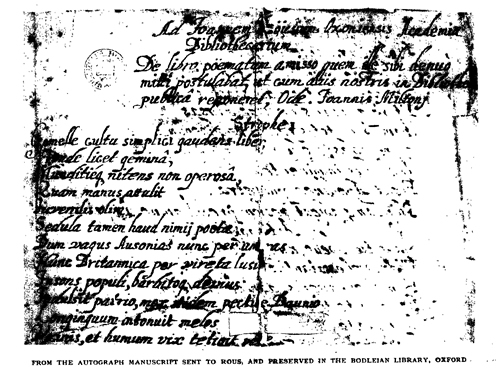 Ad Joannem Oxoniensis Academiæ
Bibliothecarium
De libro poematum amisso quem ille sibi denuo
mitti postulabat, ut cum aliis nostris in
publicâ reponeret, Ode. Joannis Miltoni
Strophe
cultu simplici gaudens liber
licet geminâ,
nitens non operosâ,
Quam manus attulit
olim,
Sedula tamen haud nimij poetæ
Dum vagus Ausonias nunc per
Nunc Britannica per vireta lusit
populi, barbitoq devius
patrio, mox itidem pectine Daunio
Longinquum intonuit melos
et humum vix tetigit
FROM THE AUTOGRAPH MANUSCRIPT SENT TO ROUS, AND PRESERVED IN THE BODLEIAN LIBRARY, OXFORD